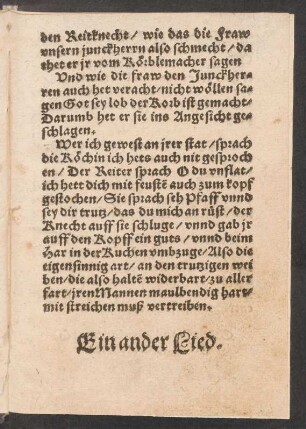 den Reitknecht / wie das die Fraw
vnsern junckherrn also schmecht / da
thet er jr vom Körblemacher sagen
Vnd wie die fraw den Junckher-
ren auch het veracht / nicht wöllen sa-
gen Got sey lob der Korb ist gemacht /
Darumb het er sie ins Angesicht ge-
schlagen.
Wer ich gewest an jrer stat / sprach
die Köchin ich hets auch nit gesproch
en / Der Reiter sprach O du vnflat /
ich hett dich mit feusten auch zum kopf
gestochen / Sie sprach seh Pfaff vnnd
sey dir trutz / das du mich an rüst / der
Knecht auff sie schluge / vnnd gab jr
auff den Kopff ein guts / vnnd beim
Har in der Kuchen vmbzuge / Also die
eigensinnig art / an den trutzigen wei
ben / die also halten widerbart / zu aller
fart / jren Mannen maulbendig hart /
mit streichen muß vertreiben.
Ein ander Lied.